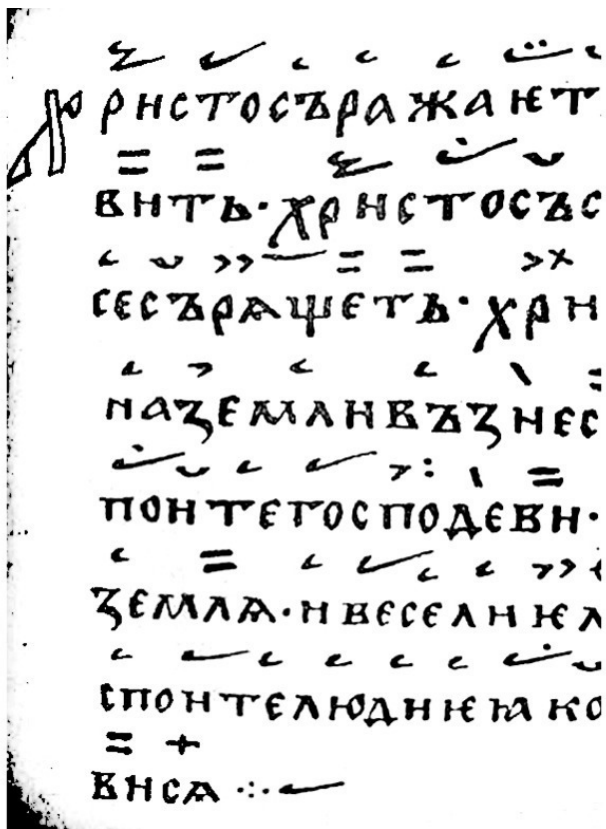 Христосъражаѥт
вить·христосъс
сесърѧщеть·хри
наземливъзнес
поитегосподеви·
землѧ·ивеселиѥ
споителюдиѥꙗко
висѧ ·:·